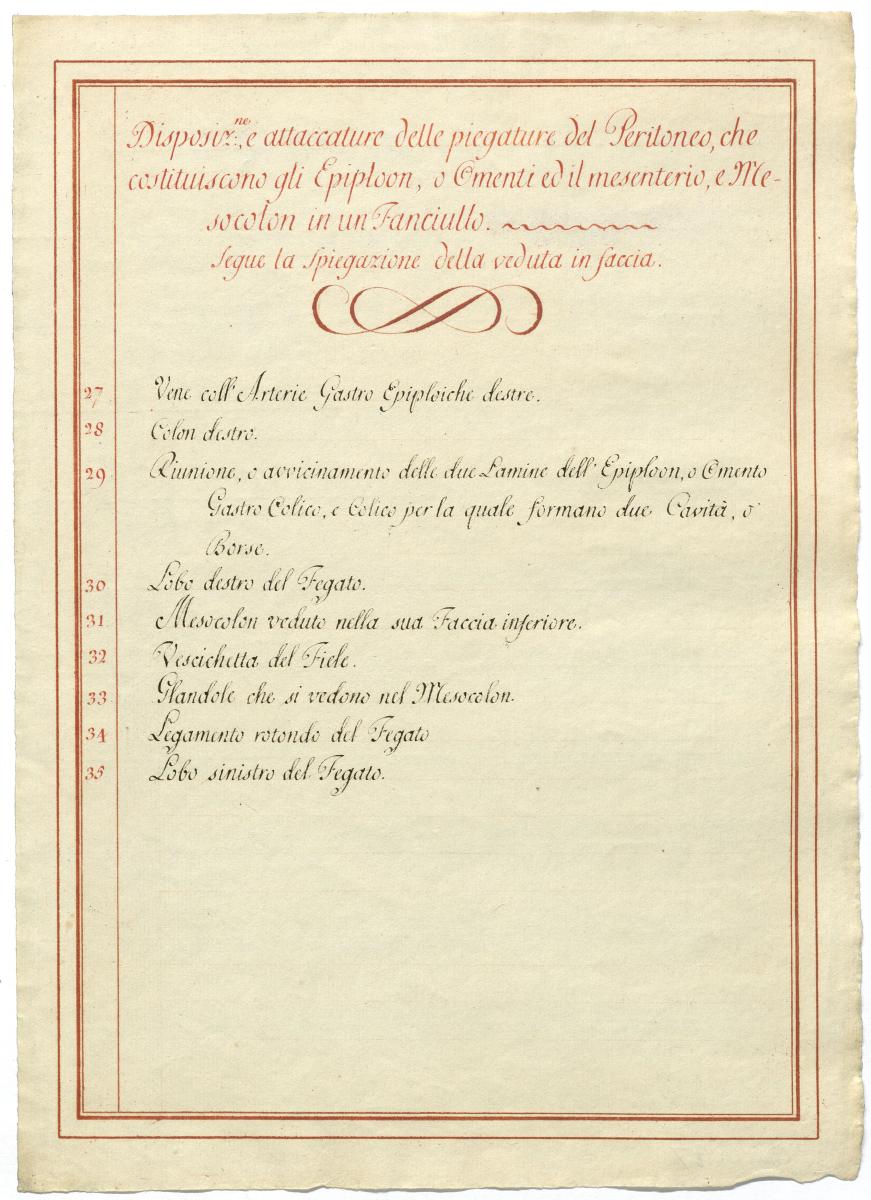 Disposiz.ne, e attaccature delle piegature del Peritoneo, che
costituiscono gli Epiploon, o Omenti ed il mesenterio, e Me-
socolon in un Fanciullo.
segue la spiegazione della veduta in faccia.
27 Vene coll' Arterie Gastro Epiploiche destre.
28 Colon destro.
29 Riunione, o avvicinamento delle due Lamine dell' Epiploon, o Omento
Gastro Colico, e Colico per la quale formano due Cavità, o
Borse.
30 Lobo destro del Fegato.
31 Mesocolon veduto nella sua Faccia inferiore.
32 Vescichetta del Fiele.
33 Glandole che si vedono nel Mesocolon.
34 Legamento rotondo del Fegato
35 Lobo sinistro del Fegato.